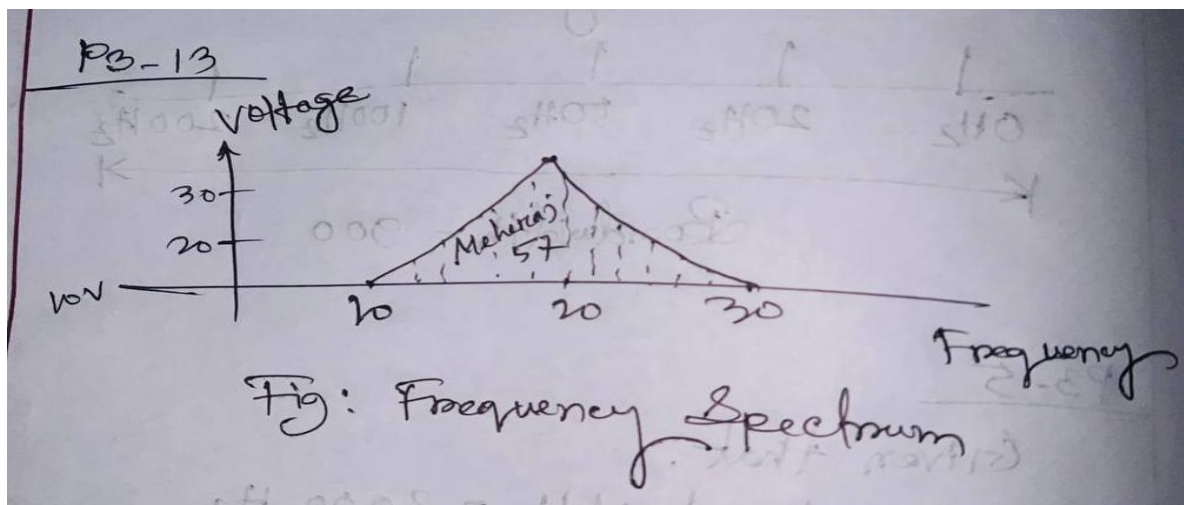 P3-13
Voltage
30
20
10V
Meheraj
57
10 20 30
Frequency
Fig: Frequency Spectrum